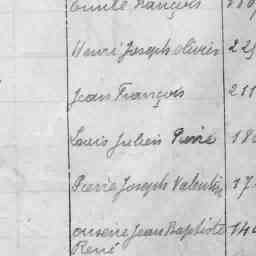 Emile François
Henri Joseph olivier 225
Jean François 211
Louis Julien Pierre 180
Pierre Joseph Valentin 17
onseine Jean Baptiste 140
René